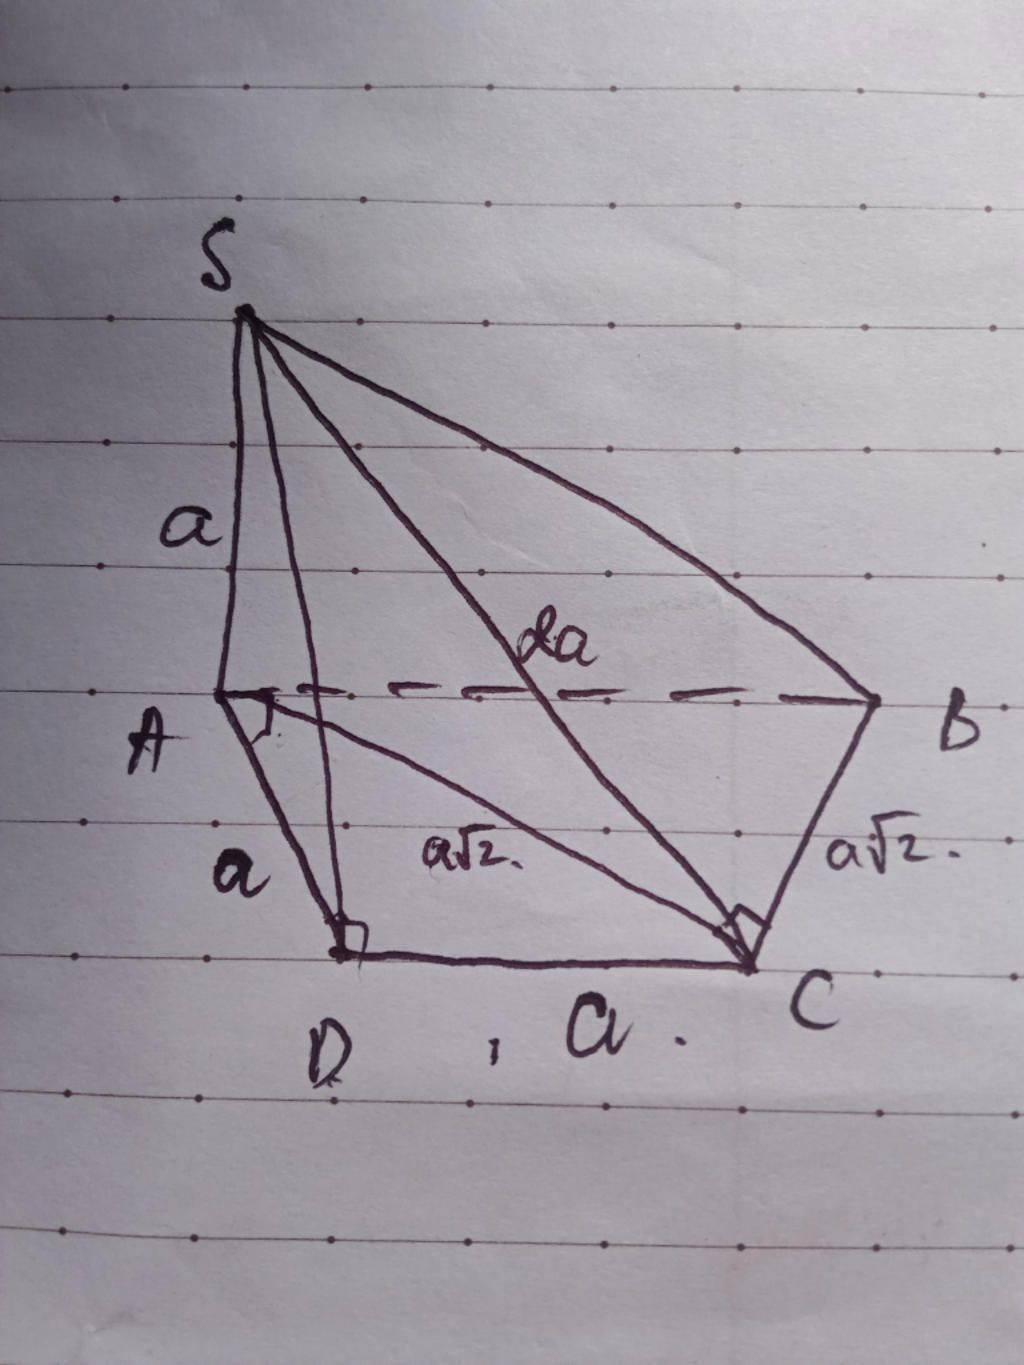 S
a
2a
A
B
a
a√2.
a√2.
D
, a.
C